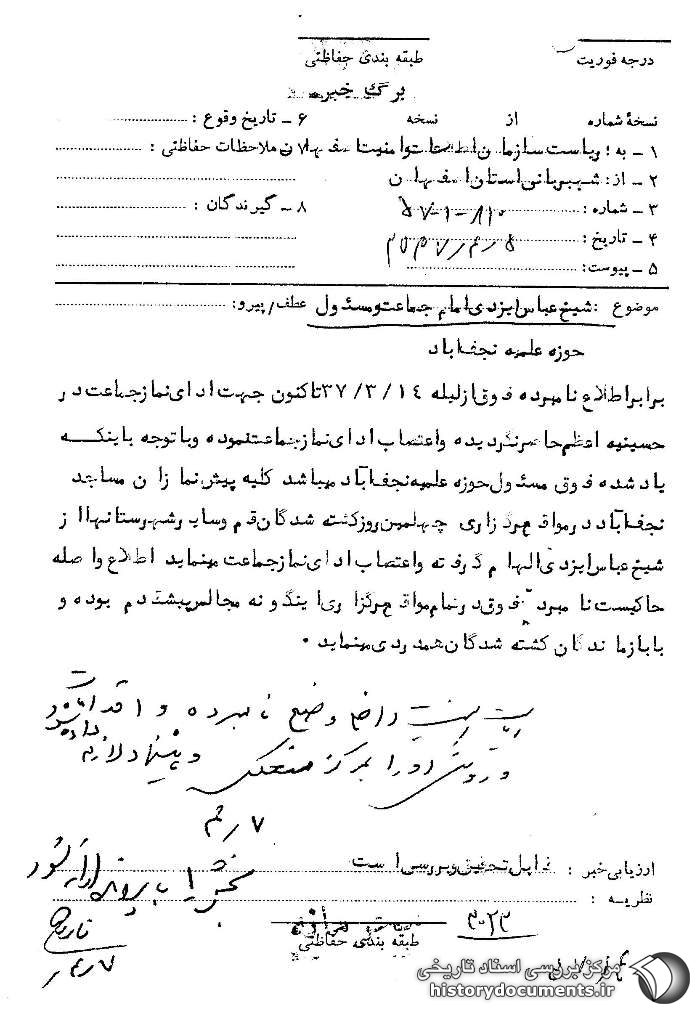 درجه فوریت
طبقه بندی حفاظتی
برگ خبر
نسخهٔ شماره از نسخه
۶ - تاریخ وقوع :
۱ - به : ریاست سازمان اطلاعات و امنیت اصفهان
۷ - ملاحظات حفاظتی :
۲ - از : شهربانی استان اصفهان
۳ - شماره : ۵۷-۱-۸۱۰
۸ - گیرندگان :
۴ - تاریخ : ۲۵۳۷/۴/۵
۵ - پیوست :
موضوع : شیخ عباس ایزدی امام جماعت و مسئول عطف / پیرو :
حوزه علمیه نجف آباد
برابر اطلاع نامبرده فوق از لیله ۳۷/۳/۱۴ تاکنون جهت ادای نماز جماعت در
حسینیه اعظم حاضر نگردیده و اعتصاب ادای نماز جماعت نموده و با توجه باینکه
یاد شده فوق مسئول حوزه علمیه نجف آباد میباشد کلیه پیش نمازان مساجد
نجف آباد در مواقع برگزاری چهلمین روز کشته شدگان قم و سایر شهرستانها از
شیخ عباس ایزدی الهام گرفته و اعتصاب ادای نماز جماعت مینماید اطلاع واصله
حاکیست نامبرده فوق در تمام مواقع برگزاری اینگونه مجالس پیشقدم بوده و
با بازماندگان کشته شدگان همدردی مینماید .
وضع نامبرده و اقدامات
و او را به مرکز منعکس و پیشنهاد لازم داده شود
۷/۴
ارزیابی خبر : قابل تحقیق و بررسی است
نظریه :
بخش با پرونده
تاریخ
۷/۴
۳۰۲۳
طبقه بندی حفاظتی
مرکز بررسی اسناد تاریخی
historydocuments.ir